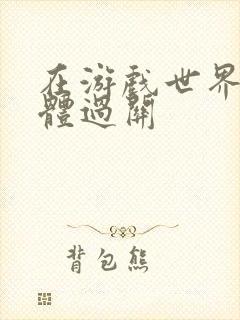 在游戲世界
體過關
背包熊